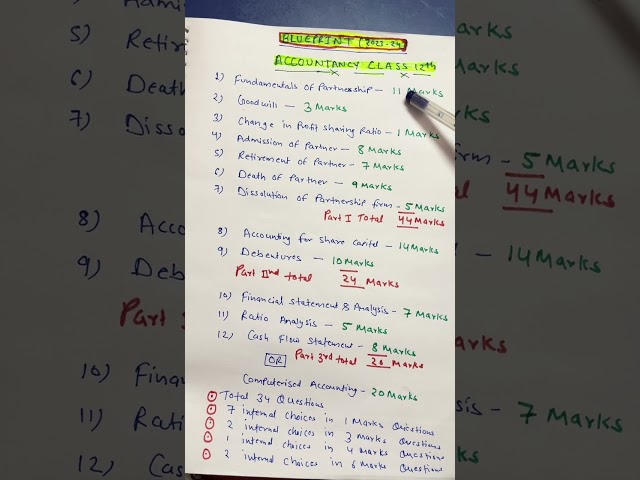 BLUEPRINT (2023-24)
ACCOUNTANCY CLASS 12th
1) Fundamentals of Partnership - 11 Marks
2) Goodwill - 3 Marks
3) Change in Profit sharing Ratio - 1 Marks
4) Admission of Partner - 8 Marks
5) Retirement of Partner - 7 Marks
6) Death of Partner - 9 Marks
7) Dissolution of Partnership firm - 5 Marks
Part I Total 44 Marks
8) Accounting for share capital - 14 Marks
9) Debentures - 10 Marks
Part IInd total 24 Marks
10) Financial statement & Analysis - 7 Marks
11) Ratio Analysis - 5 Marks
12) Cash Flow statement - 8 Marks
OR Part 3rd total 20 Marks
Computerised Accounting - 20 Marks
Total 34 Questions
7 internal choices in 1 Marks Questions
2 internal choices in 3 Marks Questions
1 internal choices in 4 Marks Questions
2 internal choices in 6 Marks Questions